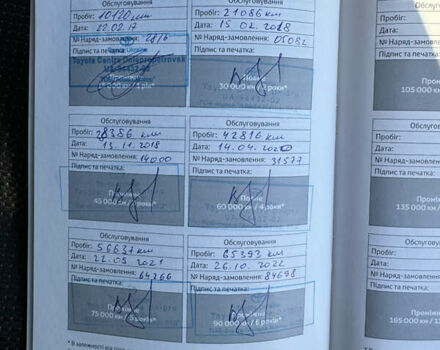 Обслуговування
Пробіг: 10120 км
Дата: 22.02.17
№ Наряд-замовлення: 
Підпис та печатка:
Toyota Center Dnipropetrovsk
Обслуговування
Пробіг: 21086 км
Дата: 15.02.2018
№ Наряд-замовлення: 05082
Підпис та печатка:
Повне
30 000 км / 2 роки*
Обслуговування
Пробіг: 28386 км
Дата: 13.11.2018
№ Наряд-замовлення: 14000
Підпис та печатка:
45 000 км / 3 роки*
Обслуговування
Пробіг: 42816 км
Дата: 14.04.2020
№ Наряд-замовлення: 31577
Підпис та печатка:
Повне
60 000 км / 4 роки*
Обслуговування
Пробіг: 56631 км
Дата: 22.05.2021
№ Наряд-замовлення: 64266
Підпис та печатка:
Проміжне
75 000 км / 5 років*
Обслуговування
Пробіг: 65393 км
Дата: 26.10.2022
№ Наряд-замовлення: 84698
Підпис та печатка:
90 000 км / 6 років*
* В залежності від
Пробіг:
Дата:
№ Наряд-з
Підпис та
105 000
Пробіг:
Дата:
№ Наряд-з
Підпис та
Проміжн
135 000 км /
Пробіг:
Дата:
№ Наряд-за
Підпис та п
Проміжн
165 000 км / 1